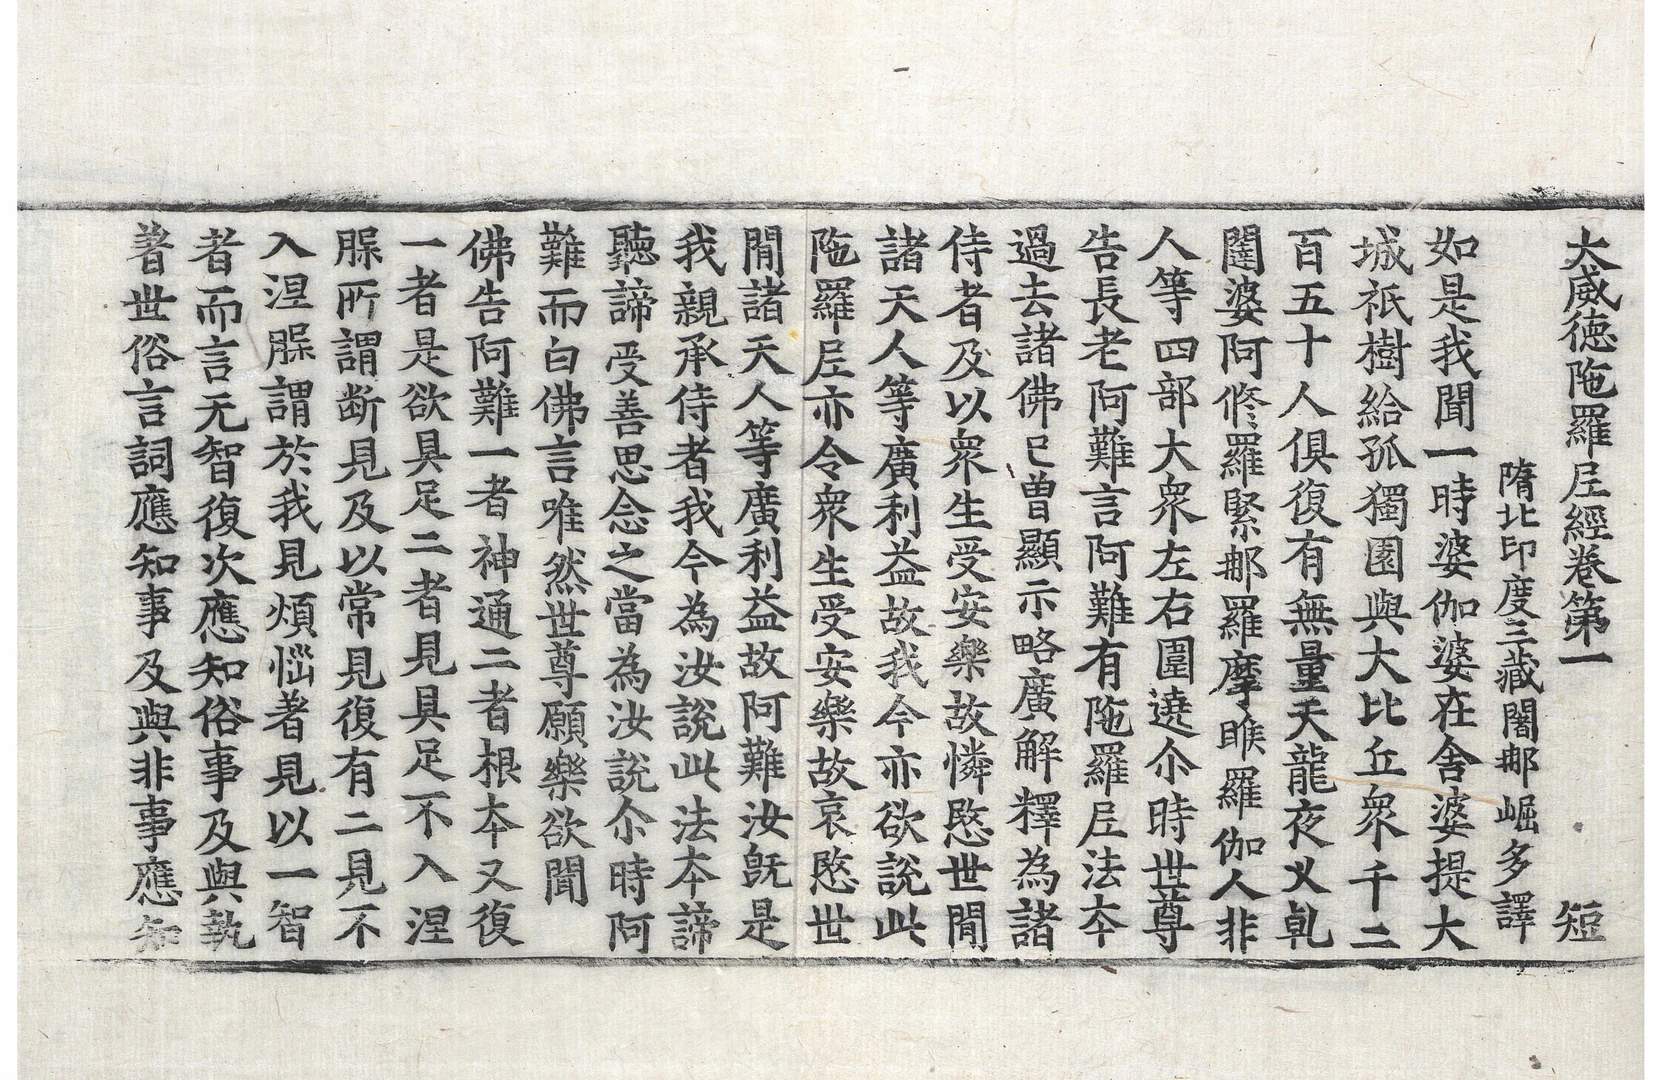 大威德陁羅𡰱經卷第一 短
隋北印度三藏闍那崛多譯
如是我聞一時婆伽婆在舍婆提大
城祇樹給孤獨園與大比丘衆千二
百五十人俱復有無量天龍夜叉乹
闥婆阿修羅緊那羅摩睺羅伽人非
人等四部大衆左右圍遶尒時世尊
告長老阿難言阿難有陁羅𡰱法夲
過去諸佛已曽顯示略廣解釋為諸
侍者及以衆生受安樂故憐愍世閒
諸天人等廣利益故我今亦欲說此
陁羅𡰱亦令衆生受安樂故哀愍世
閒諸天人等廣利益故阿難汝旣是
我親承侍者我今為汝說此法夲諦
聽諦受善思念之當為汝說尒時阿
難而白佛言唯然世尊願樂欲聞
佛告阿難一者神通二者根夲又復
一者是欲具足二者見具足不入涅
𦜮所謂断見及以常見復有二見不
入涅𦜮謂於我見煩惱著見以一智
者而言无智復次應知俗事及與執
著世俗言詞應知事及與非事應知